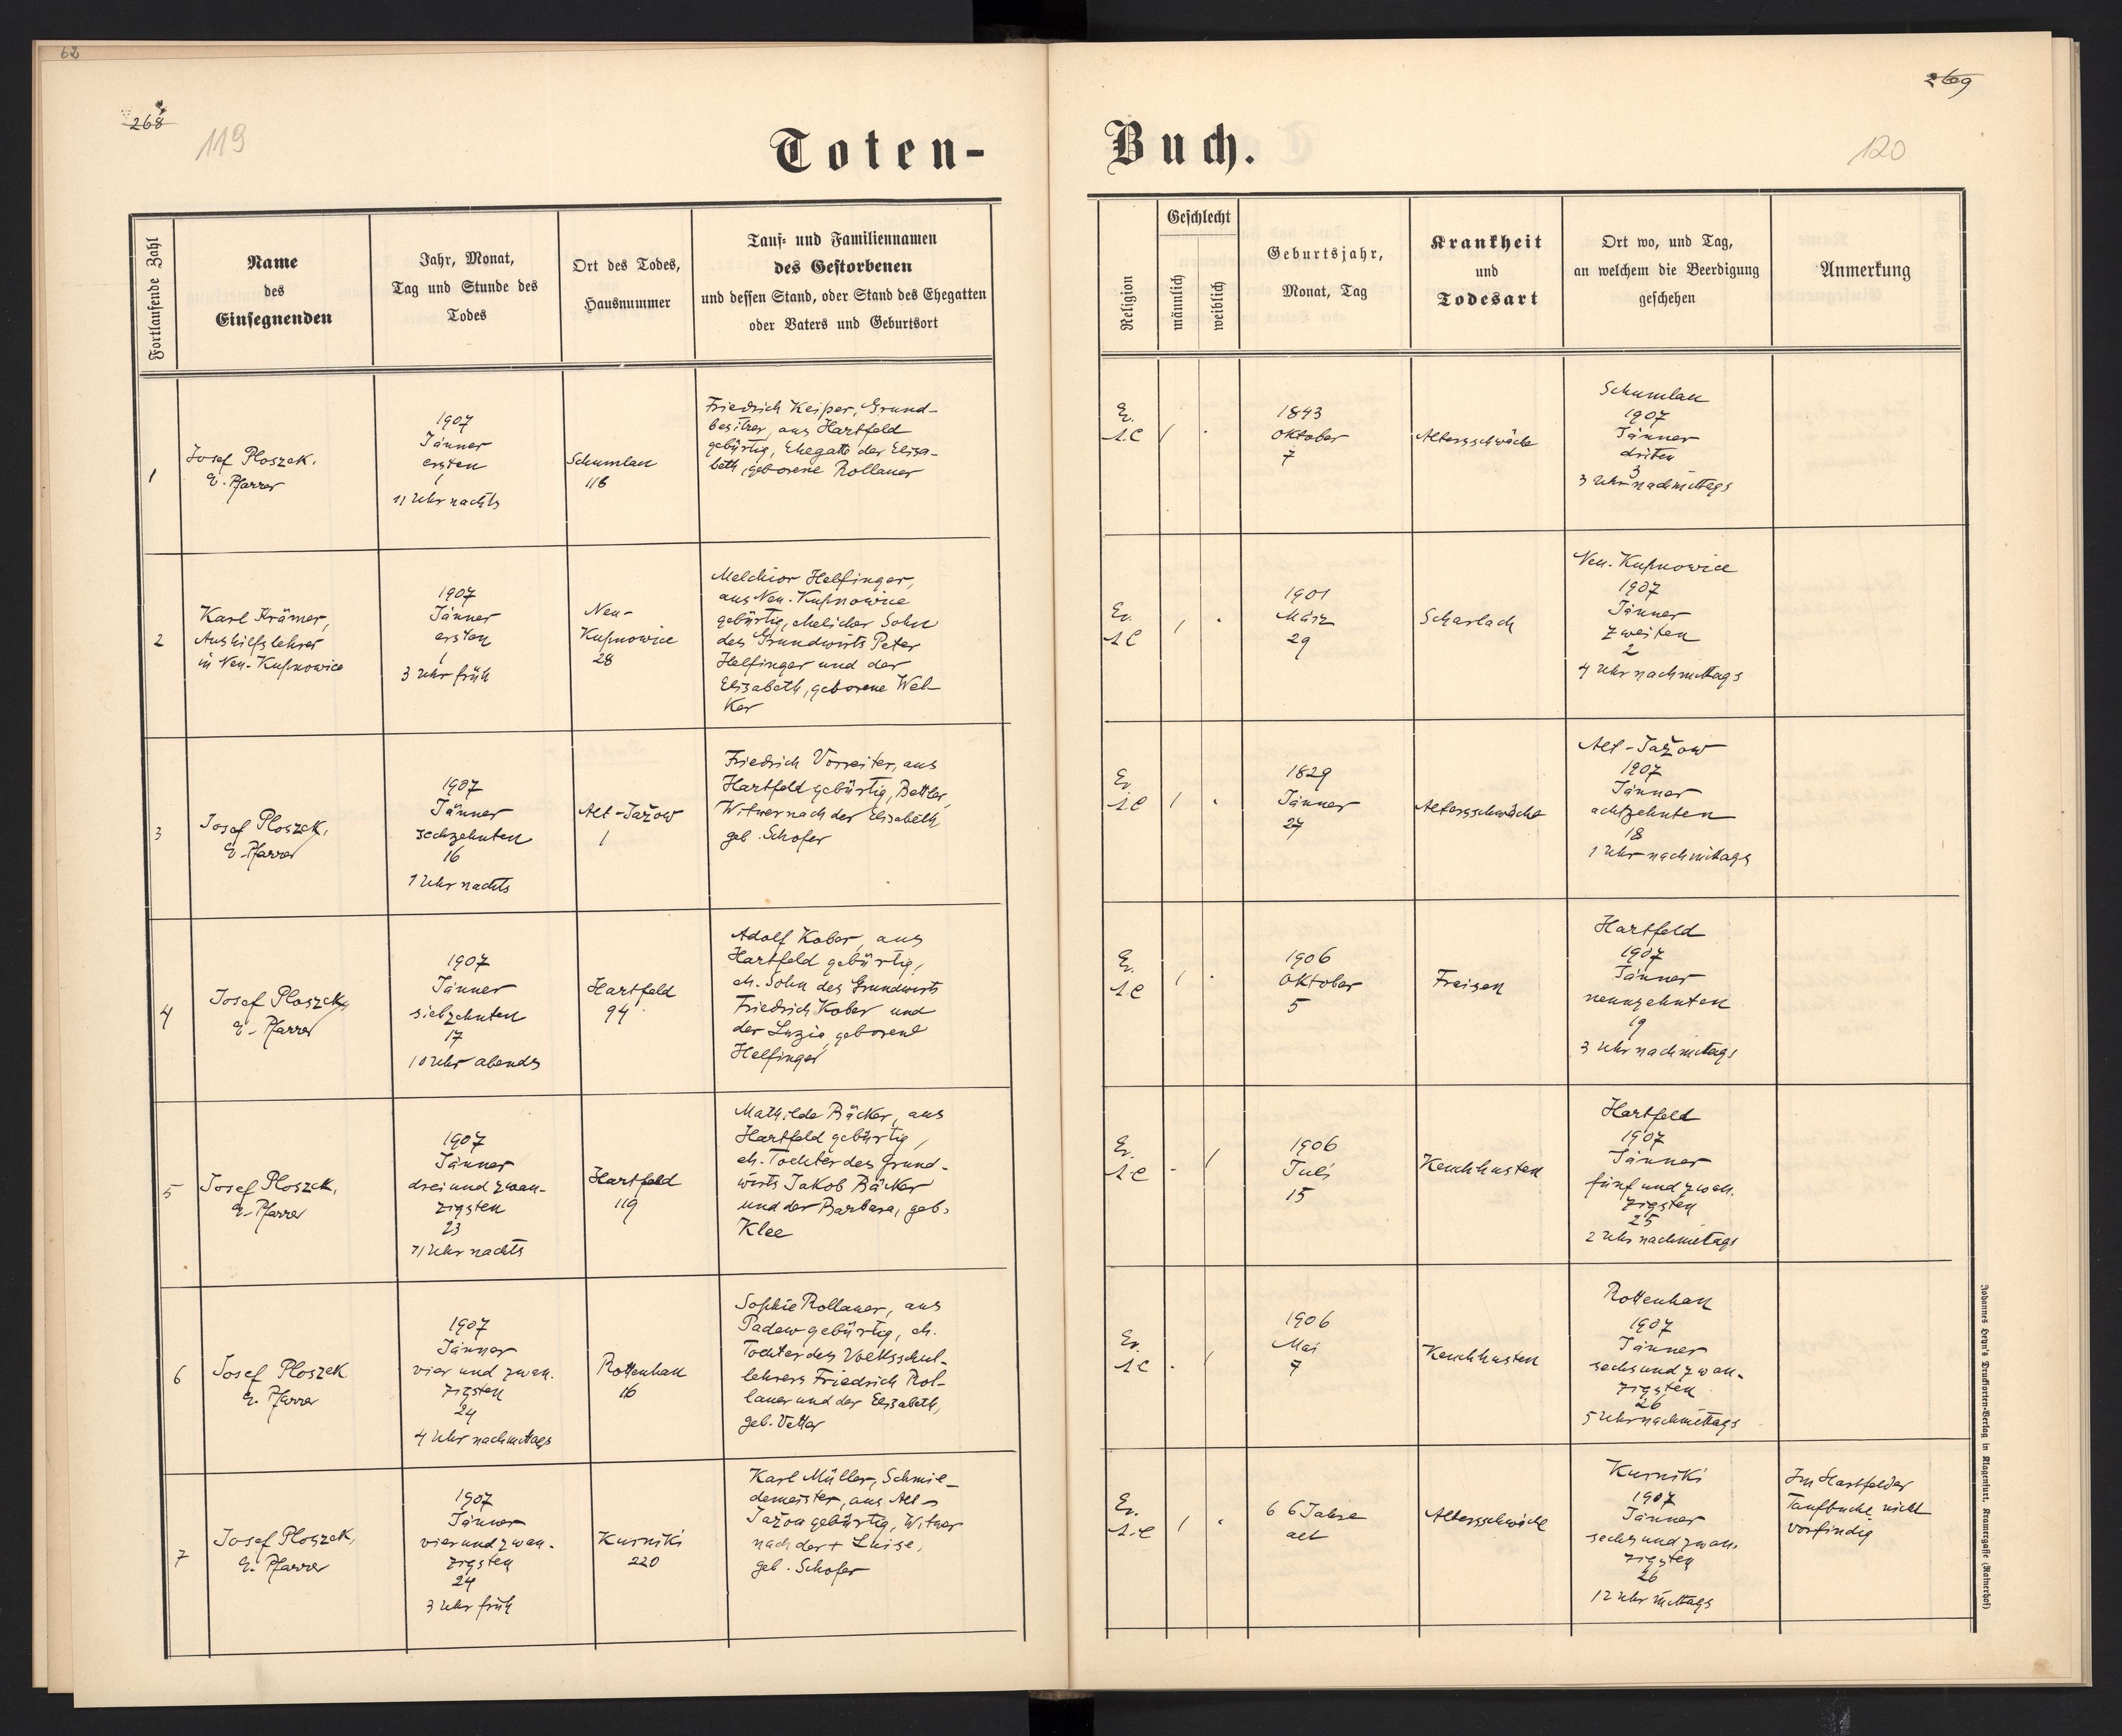 62
268
119
Toten-
Fortlaufende Zahl
Name
des
Einsegnenden
Jahr, Monat,
Tag und Stunde des
Todes
Ort des Todes,
Hausnummer
Tauf- und Familiennamen
des Gestorbenen
und dessen Stand, oder Stand des Ehegatten
oder Vaters und Geburtsort
1
Josef Ploszek,
E. Pfarrer
1907
Jänner
ersten
1
11 Uhr nachts
Schumlau
116
Friedrich Keiper, Grund-
besitzer, aus Hartfeld
gebürtig, Ehegatte der Elisa-
beth, geborene Rollauer
2
Karl Krämer,
Aushilfslehrer
in Neu-Kupnowice
1907
Jänner
ersten
1
3 Uhr früh
Neu-
Kupnowice
28
Melchior Helfinger,
aus Neu-Kupnowice
gebürtig, ehelicher Sohn
des Grundwirts Peter
Helfinger und der
Elisabeth, geborene Wel-
ker
3
Josef Ploszek,
E. Pfarrer
1907
Jänner
sechzehnten
16
1 Uhr nachts
Alt-Jažow
1
Friedrich Vorreiter, aus
Hartfeld gebürtig, Bettler,
Witwer nach der Elisabeth
geb. Schofer
4
Josef Ploszek,
E. Pfarrer
1907
Jänner
siebzehnten
17
10 Uhr abends
Hartfeld
94
Adolf Kober, aus
Hartfeld gebürtig,
eh. Sohn des Grundwirts
Friedrich Kober und
der Luzia, geborene
Helfinger
5
Josef Ploszek,
E. Pfarrer
1907
Jänner
drei und zwan-
zigsten
23
11 Uhr nachts
Hartfeld
119
Mathilde Bäcker, aus
Hartfeld gebürtig,
eh. Tochter des Grund-
wirts Jakob Bäcker
und der Barbara, geb.
Klee
6
Josef Ploszek
E. Pfarrer
1907
Jänner
vier und zwan-
zigsten
24
4 Uhr nachmittags
Rottenhan
16
Sophie Rollauer, aus
Padew gebürtig, eh.
Tochter des Volksschul-
lehrers Friedrich Rol-
lauer und der Elisabeth,
geb. Vetter
7
Josef Ploszek,
E. Pfarrer
1907
Jänner
vier und zwan-
zigsten
24
3 Uhr früh
Kurniki
220
Karl Müller, Schmie-
demeister, aus Alt-
Jažow gebürtig, Witwer
nach der + Luise,
geb. Schofer
269
120
Buch.
Religion
Geschlecht
männlich
weiblich
Geburtsjahr,
Monat, Tag
Krankheit
und
Todesart
Ort wo, und Tag,
an welchem die Beerdigung
geschehen
Anmerkung
Ev.
A.C
1843
Oktober
7
Altersschwäche
Schumlau
1907
Jänner
dritten
3
3 Uhr nachmittags
Ev.
A.C
1901
März
29
Scharlach
Neu-Kupnowice
1907
Jänner
zweiten
2
4 Uhr nachmittags
Ev.
A.C
1829
Jänner
27
Altersschwäche
Alt-Jažow
1907
Jänner
achtzehnten
18
1 Uhr nachmittags
Ev.
A.C
1906
Oktober
5
Fraisen
Hartfeld
1907
Jänner
neunzehnten
19
3 Uhr nachmittags
Ev.
A.C
1906
Juli
15
Keuchhusten
Hartfeld
1907
Jänner
fünf und zwan-
zigsten
25
2 Uhr nachmittags
Ev.
A.C
1906
Mai
7
Keuchhusten
Rottenhan
1907
Jänner
sechsund zwan-
zigsten
26
5 Uhr nachmittags
Ev.
A.C
66 Jahre
alt
Altersschwäche
Kurniki
1907
Jänner
sechs und zwan-
zigsten
26
12 Uhr mittags
Im Hartfelder
Taufbuche nicht
vorfindig
Johannes Heyn's Drucksorten-Verlag in Klagenfurt. Kramergasse (Rainerhof)